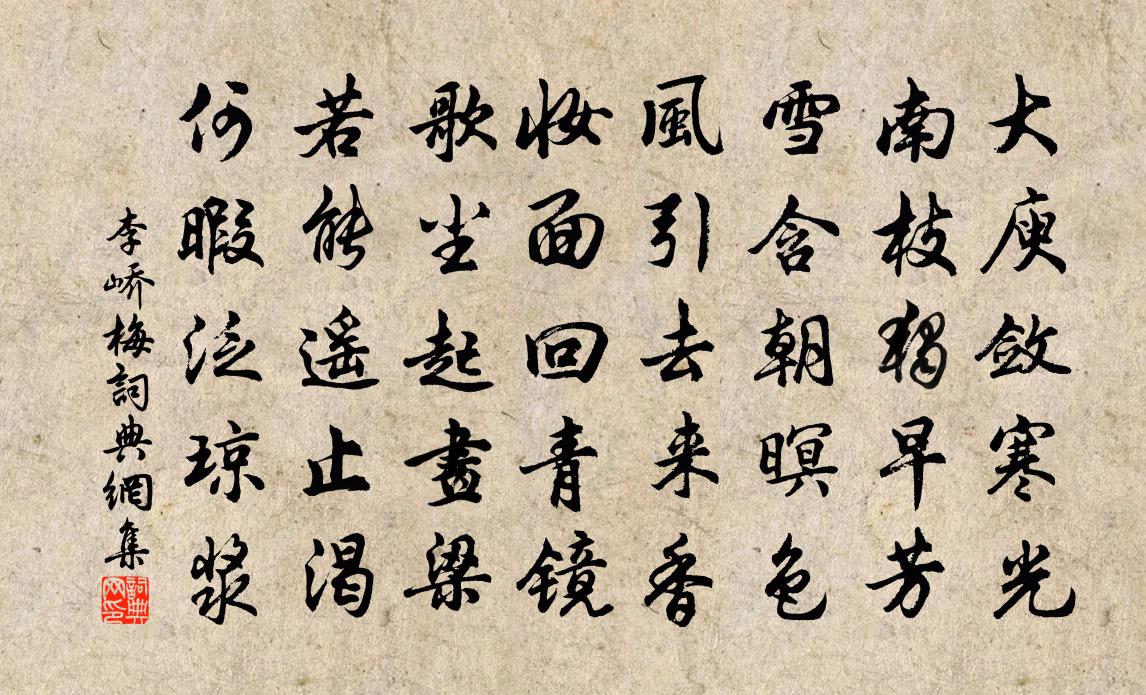 大庾斂寒光
南枝獨早芳
雪含朝暝色
風引去来香
妝面回青鏡
歌尘起畫梁
若能遥止渴
何暇泛琼漿
李嶠梅詞典網集
詞典网印